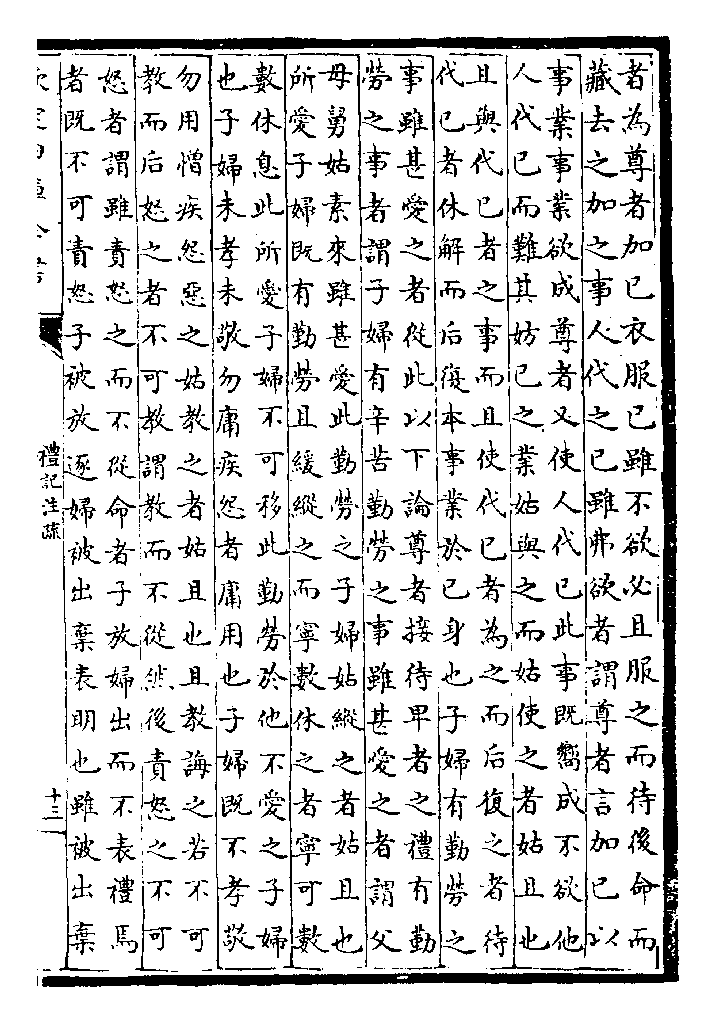 者為尊者加已衣服已雖不欲必且服之而待後命而
藏去之加之事人代之已雖弗欲者謂尊者言加已以
事業事業欲成尊者又使人代已此事既嚮成不欲他
人代已而難其妨已之業姑與之而姑使之者姑且也
且與代已者之事而且使代已者為之而后復之者待
代已者休解而后復本事業於已身也子婦有勤勞之
事雖甚愛之者從此以下論尊者接待卑者之禮有勤
勞之事者謂子婦有辛苦勤勞之事雖甚愛之者謂父
母舅姑素來雖甚愛此勤勞之子婦姑縱之者姑且也
所愛子婦既有勤勞且緩縱之而寧數休之者寧可數
數休息此所愛子婦不可移此勤勞於他不愛之子婦
也子婦未孝未敬勿庸疾怨者庸用也子婦既不孝敬
勿用憎疾怨惡之姑教之者姑且也且教誨之若不可
教而后怒之者不可教謂教而不從然後責怒之不可
怒者謂雖責怒之而不從命者子放婦出而不表禮焉
者既不可責怒子被放逐婦被出棄表明也雖被出棄
禮記注疏
十三